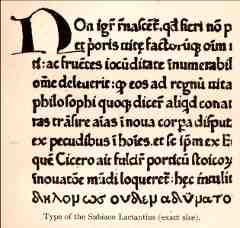 Non igr̃ nasceť. qđ fieri nõ p
et p̃oris uitę factorũq; oĩm
t: ac fruẽtes iocũditate ĩnumerabil
om̃e deleuerit: q; eos ad regnũ uita
philosophi quoq; dicer̃ aliqđ conat
ras trãsire aĩas ĩ noua corpa disput
ex pecudibus ĩ hoĩes. et se ip̃m ex E
quẽ Cicero ait fulcir̃ porticũ stoicoꝝ
ĩnouatõe mũdi loqueret̃: hęc ĩntulit
δηλομωσ ουδεμ αδυματο
Type of the Subiaco Lactantius (exact size).